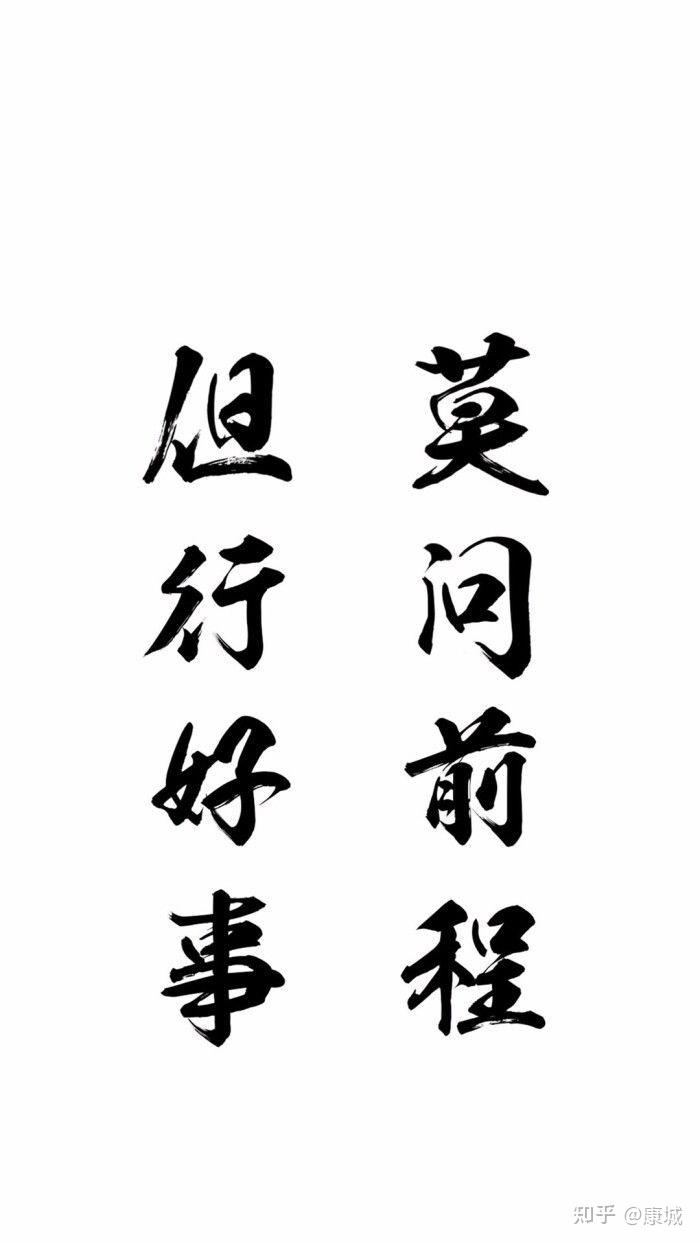 但行好事
莫问前程
知乎 @康城